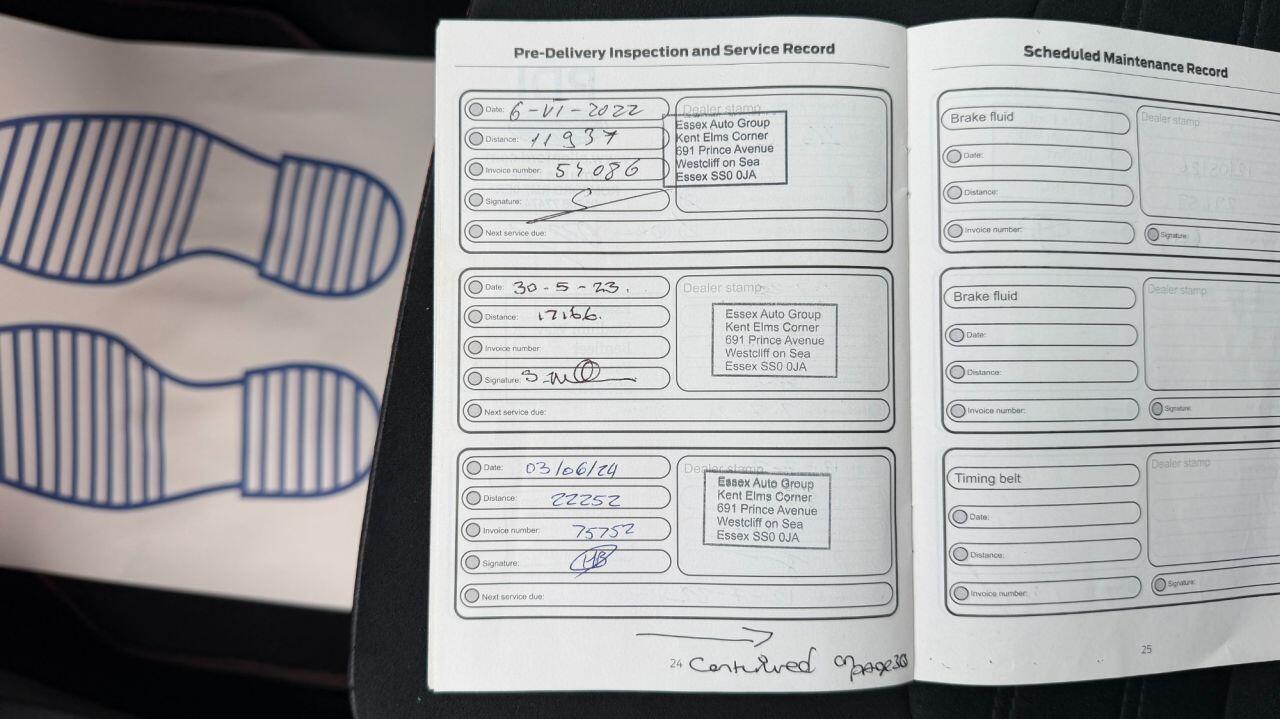 Pre-Delivery Inspection and Service Record
Date: 6-VI-2022
Dealer stamp
Distance: 11937
Invoice number: 54086
Signature:
Next service due:
Essex Auto Group
Kent Elms Corner
691 Prince Avenue
Westcliff on Sea
Essex SS0 0JA
Date: 30-5-23.
Dealer stamp
Distance: 17166.
Invoice number:
Signature:
Next service due:
Essex Auto Group
Kent Elms Corner
691 Prince Avenue
Westcliff on Sea
Essex SS0 0JA
Date: 03/06/24
Dealer stamp
Distance: 22252
Invoice number: 75752
Signature: HB
Next service due:
Essex Auto Group
Kent Elms Corner
691 Prince Avenue
Westcliff on Sea
Essex SS0 0JA
24 Continued on page 30
Scheduled Maintenance Record
Brake fluid
Dealer stamp
Date:
Distance:
Invoice number:
Signature:
Brake fluid
Dealer stamp
Date:
Distance:
Invoice number:
Signature:
Timing belt
Dealer stamp
Date:
Distance:
Invoice number:
Signature:
25